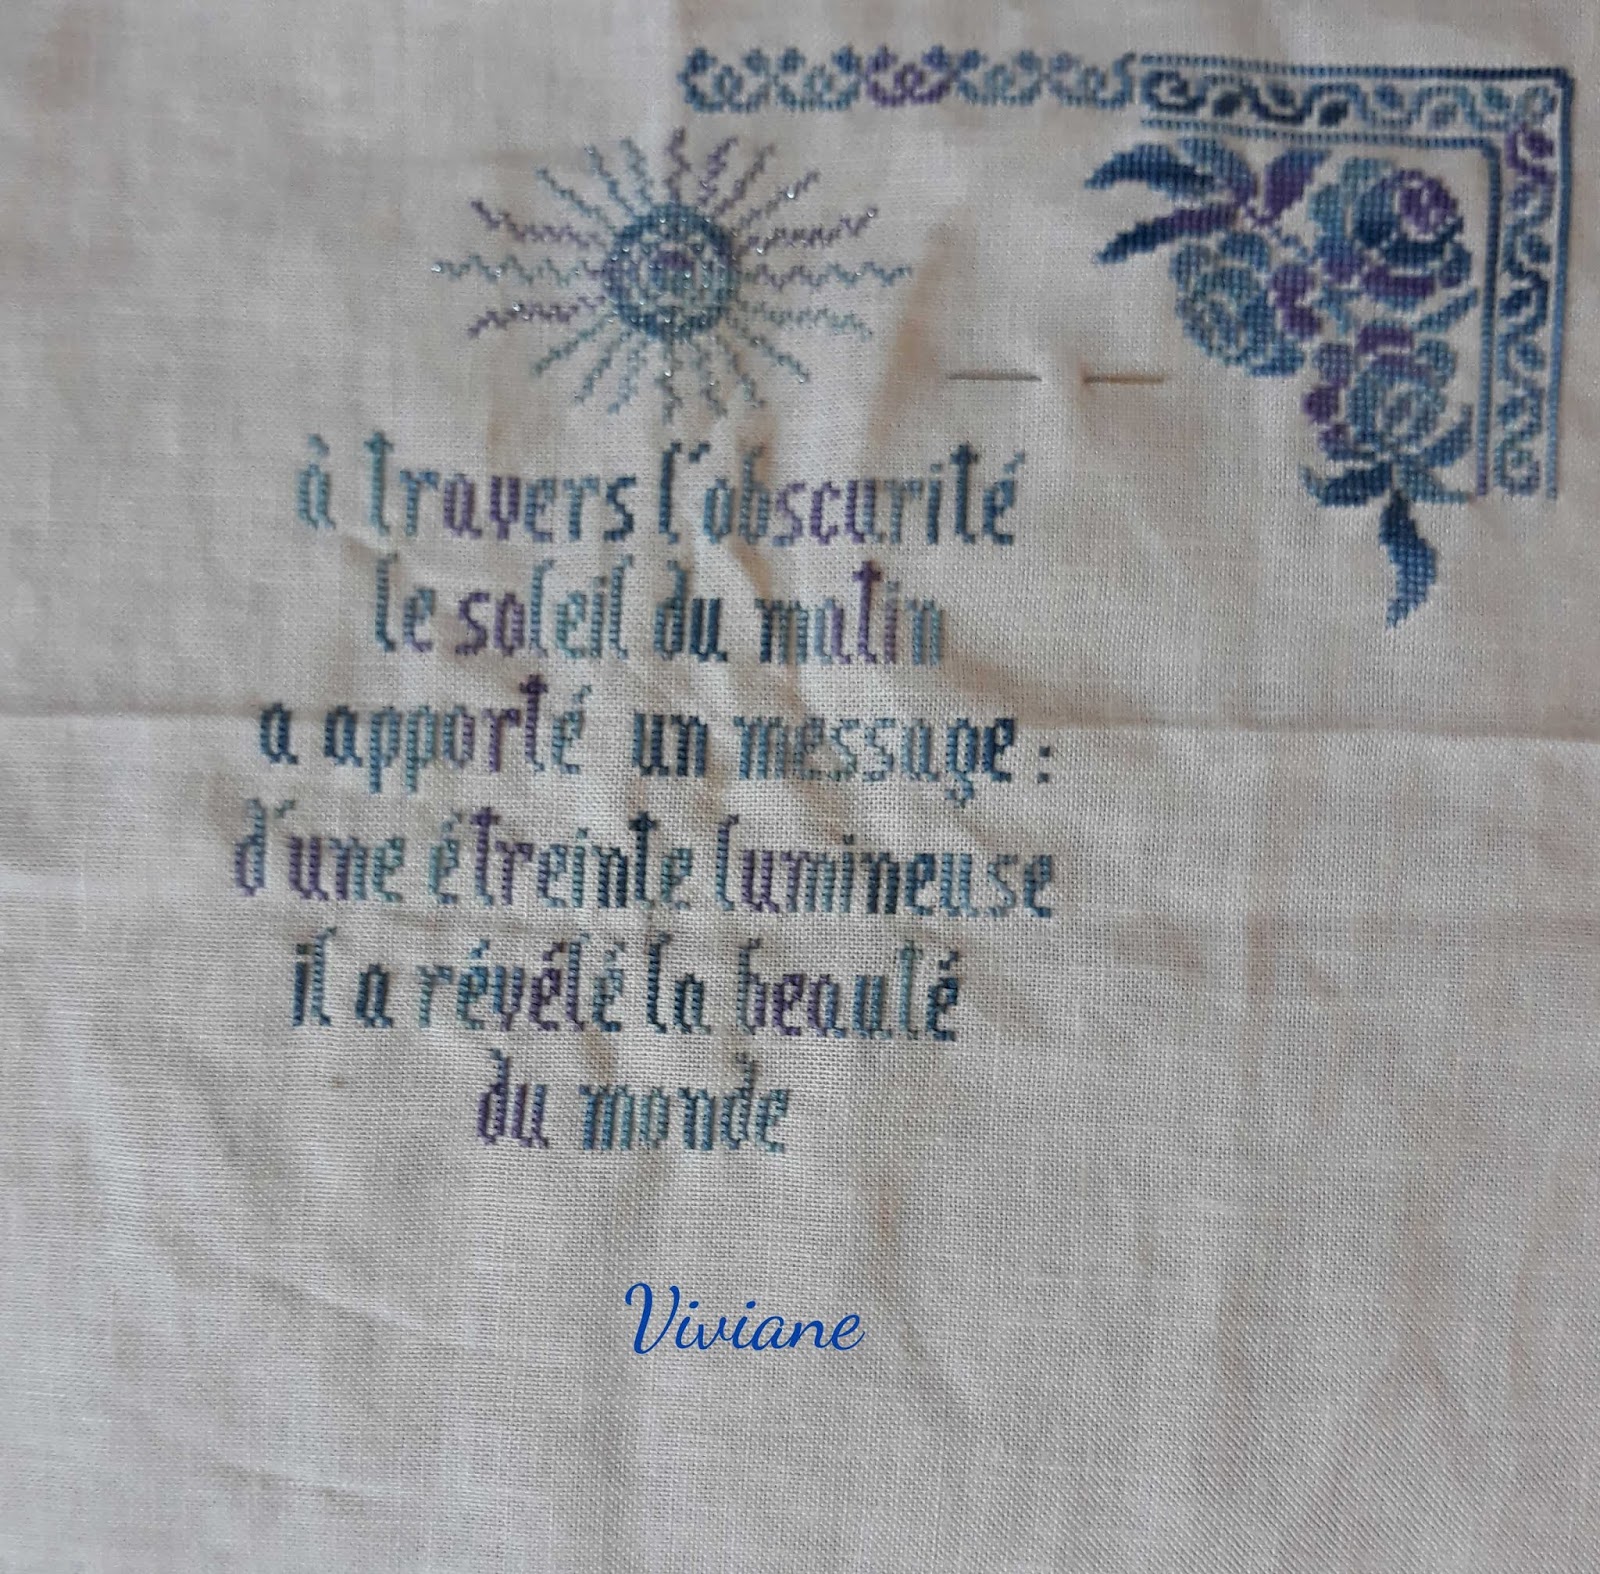 à travers l'obscurité
le soleil du matin
a apporté un message :
d'une étreinte lumineuse
il a révélé la beauté
du monde
Viviane